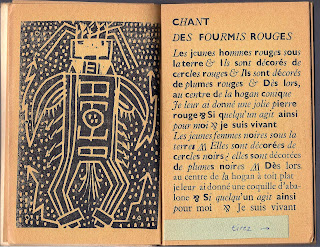 CHANT
DES FOURMIS ROUGES
Les jeunes hommes rouges sous
la terre & Ils sont décorés de
cercles rouges & Ils sont décorés
de plumes rouges & Dès lors,
au centre de la hogan conique
Je leur ai donné une jolie pierre
rouge & Si quelqu'un agit ainsi
pour moi & je suis vivant
Les jeunes femmes noires sous la
terre & Elles sont décorées de
cercles noirs & elles sont décorées
de plumes noires & Dès lors
au centre de la hogan à toit plat
je leur ai donné une coquille d'aba-
lone & Si quelqu'un agit ainsi
pour moi & Je suis vivant